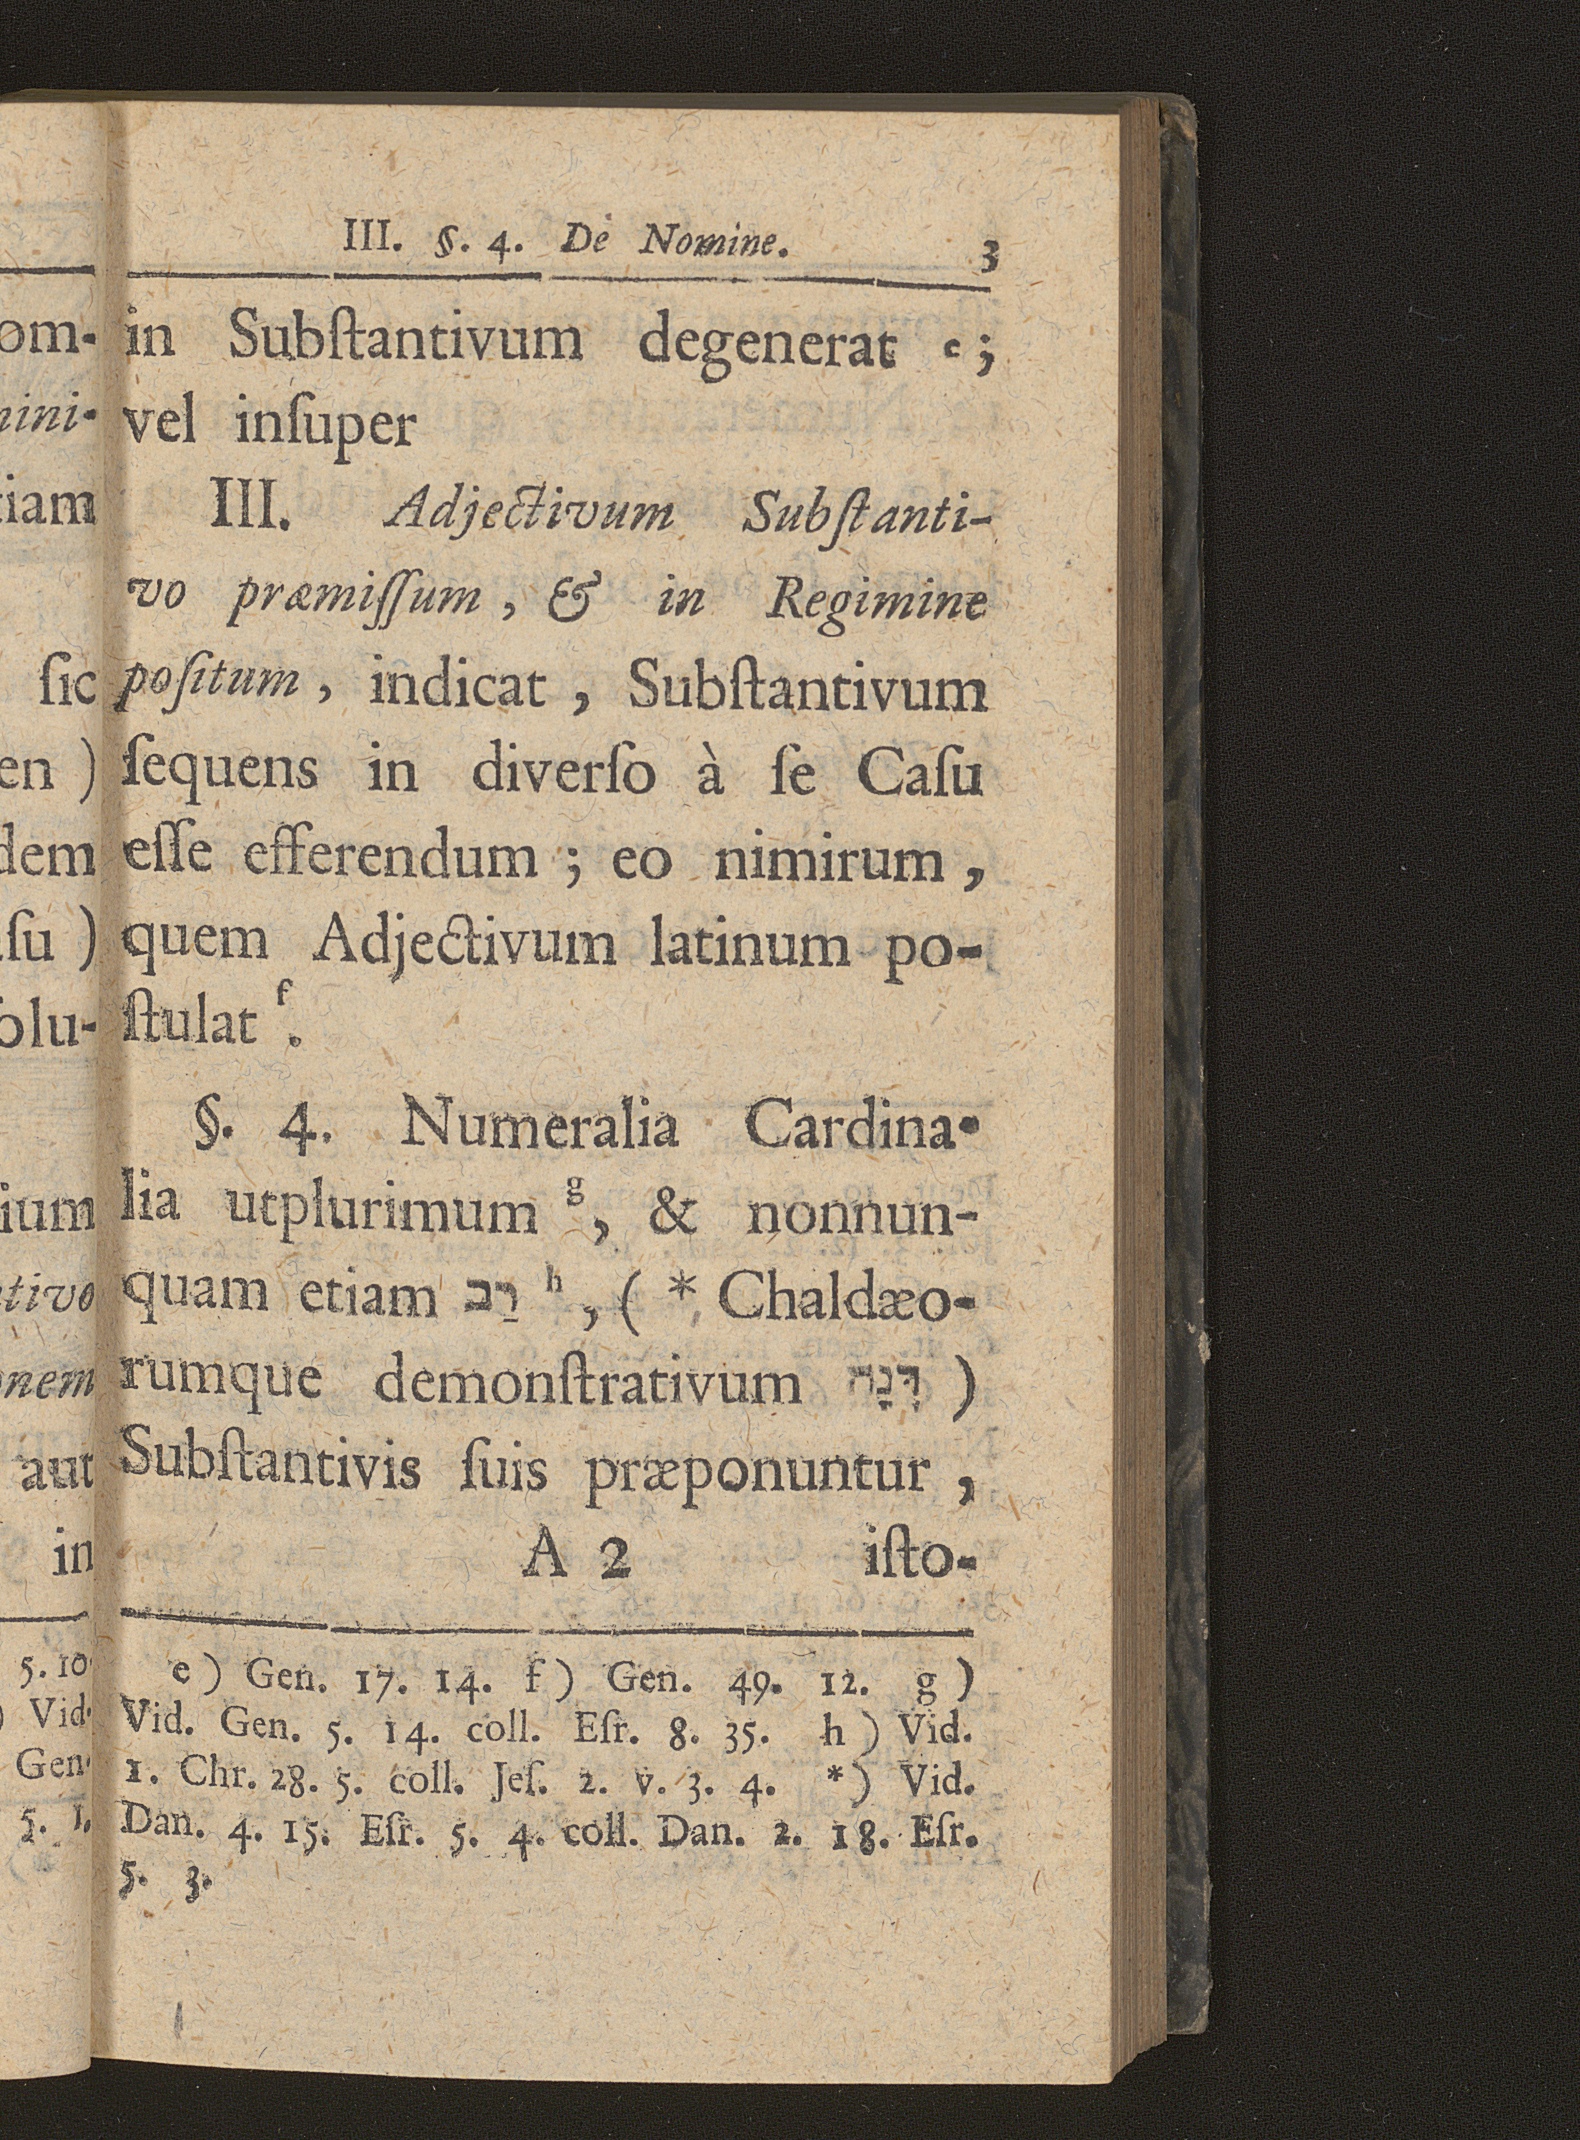 III. §. 4. De Nomine. 3
in Subſtantivum degenerat e;
vel inſuper
III. Adjectivum Subſtanti-
vo præmiſſum, & in Regimine
poſitum, indicat, Subſtantivum
ſequens in diverſo à ſe Caſu
eſſe efferendum; eo nimirum,
quem Adjectivum latinum po-
ſtulat f.
§. 4. Numeralia Cardina-
lia utplurimum g, & nonnun-
quam etiam רַב h, ( * Chaldæo-
rumque demonſtrativum דְּנָה )
Subſtantivis ſuis præponuntur,
A 2 iſto-
e ) Gen. 17. 14. f ) Gen. 49. 12. g )
Vid. Gen. 5. 14. coll. Eſr. 8. 35. h ) Vid.
1. Chr. 28. 5. coll. Jeſ. 2. v. 3. 4. * ) Vid.
Dan. 4. 15. Eſr. 5. 4. coll. Dan. 2. 18. Eſr.
5. 3.